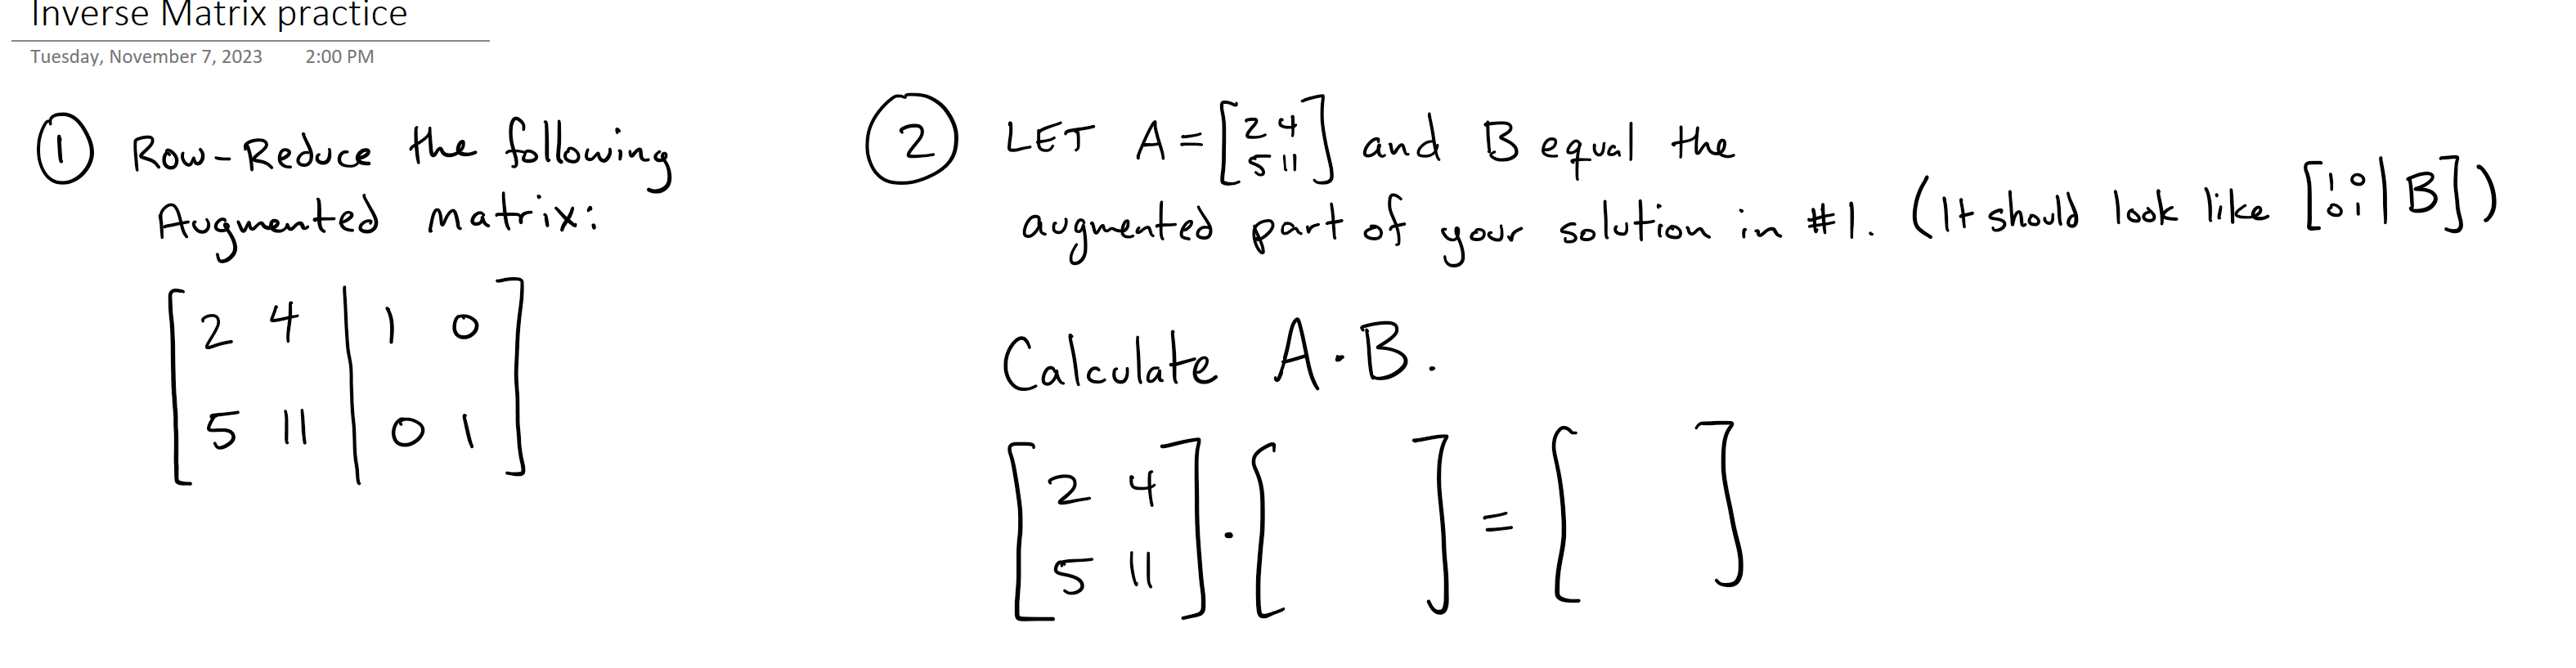 Inverse Matrix practice
Tuesday, November 7, 2023 2:00 PM
① Row-Reduce the following
Augmented matrix:
[ 2 4 | 1 0 ]
[ 5 11 | 0 1 ]
② LET A = [ 2 4 ] and B equal the
[ 5 11 ]
augmented part of your solution in #1. (It should look like [ 1 0 | B ])
[ 0 1 | ]
Calculate A·B.
[ 2 4 ] · [ ] = [ ]
[ 5 11 ]